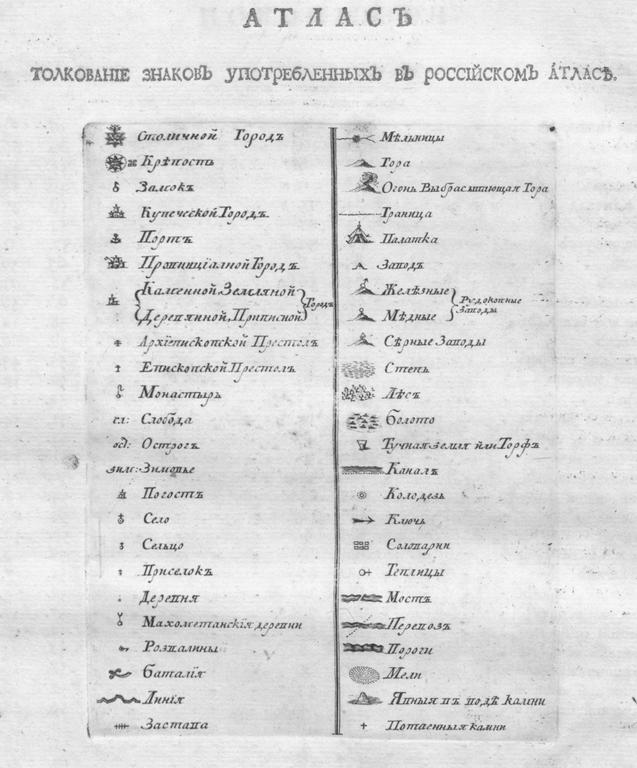 АТЛАСЪ
ТОЛКОВАНІЕ ЗНАКОВЪ УПОТРЕБЛЕННЫХЪ ВЪ РОССІЙСКОМЪ АТЛАСѢ.
Столичной Городъ
Крѣпость
Замокъ
Купеческой Городъ
Портъ
Провинціалной Городъ
Каменной Земляной
Деревянной, Приписной
Городъ
Архіепископской Престолъ
Епископской Престолъ
Монастырь
сл: Слобода
осд: Острогъ
зим: Зимовье
Погостъ
Село
Сельцо
Приселокъ
Деревня
Махометанскія деревни
Розвалины
Баталія
Линія
Застава
Мѣльницы
Гора
Огонь Выбрасывающая Гора
Граница
Палатка
Заводъ
Желѣзные
Мѣдные
Рудокопные
Заводы
Сѣрные Заводы
Степь
Лѣсъ
Болото
Тучная земля или Торфъ
Каналъ
Колодезь
Ключь
Соловарни
Теплицы
Мостъ
Перевозъ
Пороги
Мели
Явныя въ водѣ камни
Потаенныя камни